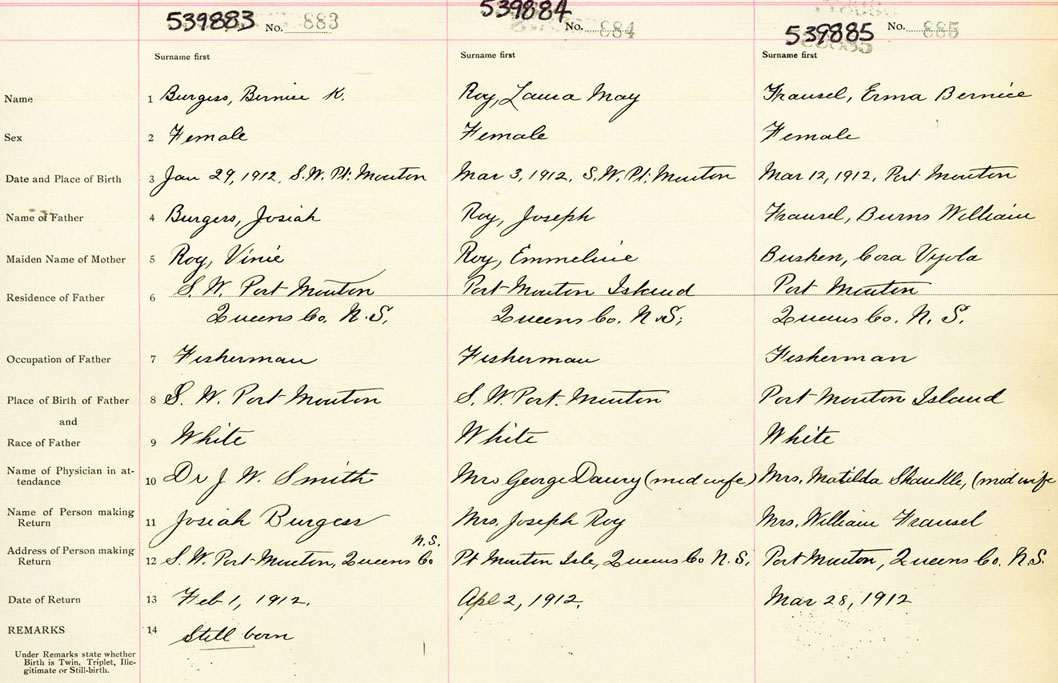 539883 No. 883
539884 No. 884
539885 No. 885
Surname first Surname first Surname first
Name 1 Burgess, Bernice K. Roy, Laura May Frausel, Erma Bernice
Sex 2 Female Female Female
Date and Place of Birth 3 Jan 29, 1912, S.W. Pt. Mouton Mar 3, 1912, S.W. Pt. Mouton Mar 12, 1912, Port Mouton
Name of Father 4 Burgess, Josiah Roy, Joseph Frausel, Burns William
Maiden Name of Mother 5 Roy, Vinie Roy, Emmeline Bushen, Cora Vyola
Residence of Father 6 S. W. Port Mouton Port Mouton Island Port Mouton
Queens Co. N.S. Queens Co. N.S. Queens Co. N.S.
Occupation of Father 7 Fisherman Fisherman Fisherman
Place of Birth of Father 8 S. W. Port Mouton S. W. Port Mouton Port Mouton Island
and
Race of Father 9 White White White
Name of Physician in at-
tendance 10 Dr J. W. Smith Mrs George Daury (midwife) Mrs. Matilda (midwife
Name of Person making
Return 11 Josiah Burgess Mrs, Joseph Roy Mrs. William Frausel
N.S.
Address of Person making
Return 12 S. W. Port Mouton, Queens Co Pt Mouton Isle, Queens Co N.S. Port Mouton, Queens Co. N.S.
Date of Return 13 Feb 1, 1912. Apl 2, 1912. Mar 28, 1912
REMARKS 14 Still born
Under Remarks state whether
Birth is Twin, Triplet, Ille-
gitimate or Still-birth.